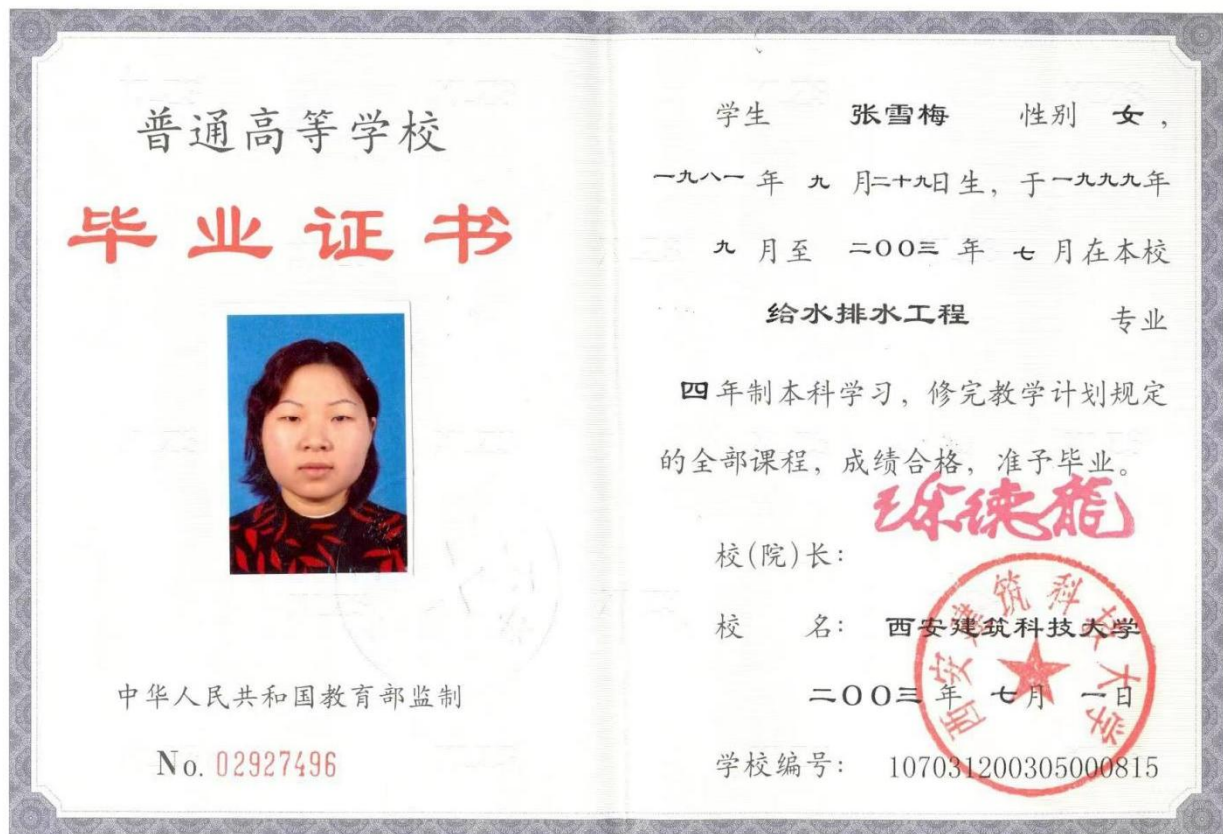 普通高等学校
毕业证书
中华人民共和国教育部监制
No. 02927496
学生 张雪梅 性别 女，
一九八一 年 九 月二十九日生，于一九九九年
九 月至 二〇〇三 年 七 月在本校
给水排水工程 专业
四年制本科学习，修完教学计划规定
的全部课程，成绩合格，准予毕业。
徐德龙
校(院)长：
校 名： 西安建筑科技大学
二〇〇三 年 七月 一日
学校编号： 107031200305000815
西安建筑科技大学